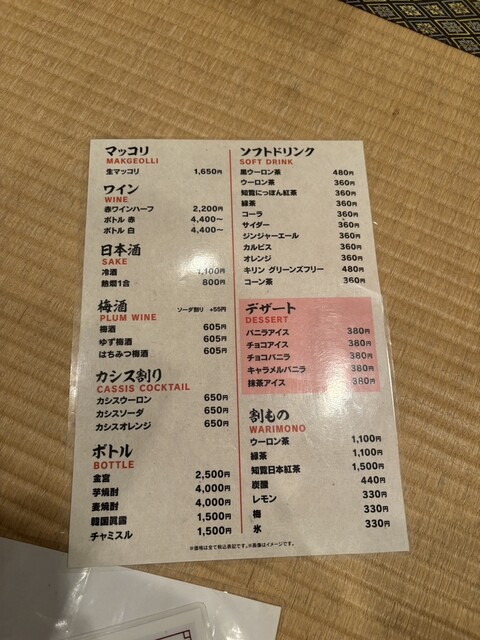 マッコリ
MAKGEOLLI
生マッコリ 1,650円
ワイン
WINE
赤ワインハーフ 2,200円
ボトル 赤 4,400〜
ボトル 白 4,400〜
日本酒
SAKE
冷酒 1,100円
熱燗1合 800円
梅酒 ソーダ割り +55円
PLUM WINE
梅酒 605円
ゆず梅酒 605円
はちみつ梅酒 605円
カシス割り
CASSIS COCKTAIL
カシスウーロン 650円
カシスソーダ 650円
カシスオレンジ 650円
ボトル
BOTTLE
金宮 2,500円
芋焼酎 4,000円
麦焼酎 4,000円
韓国眞露 1,500円
チャミスル 1,500円
ソフトドリンク
SOFT DRINK
黒ウーロン茶 480円
ウーロン茶 360円
知覧にっぽん紅茶 360円
緑茶 360円
コーラ 360円
サイダー 360円
ジンジャーエール 360円
カルピス 360円
オレンジ 360円
キリン グリーンズフリー 480円
コーン茶 360円
デザート
DESSERT
バニラアイス 380円
チョコアイス 380円
チョコバニラ 380円
キャラメルバニラ 380円
抹茶アイス 380円
割もの
WARIMONO
ウーロン茶 1,100円
緑茶 1,100円
知覧日本紅茶 1,500円
炭酸 440円
レモン 330円
梅 330円
氷 330円
※価格は全て税込表記です。※画像はイメージです。